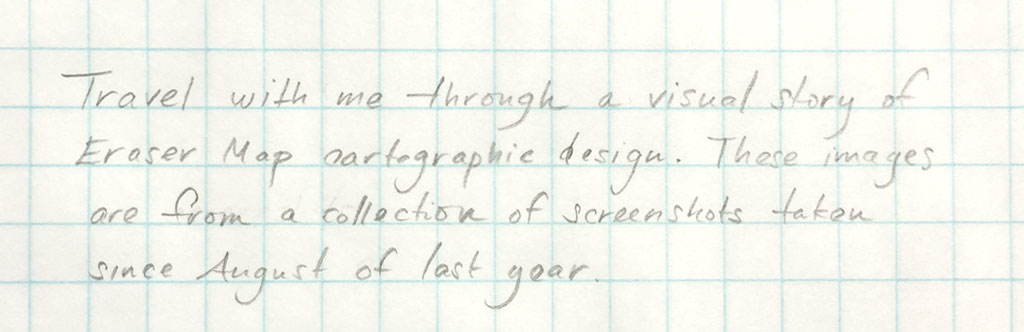 Travel with me through a visual story of
Eraser Map cartographic design. These images
are from a collection of screenshots taken
since August of last year.